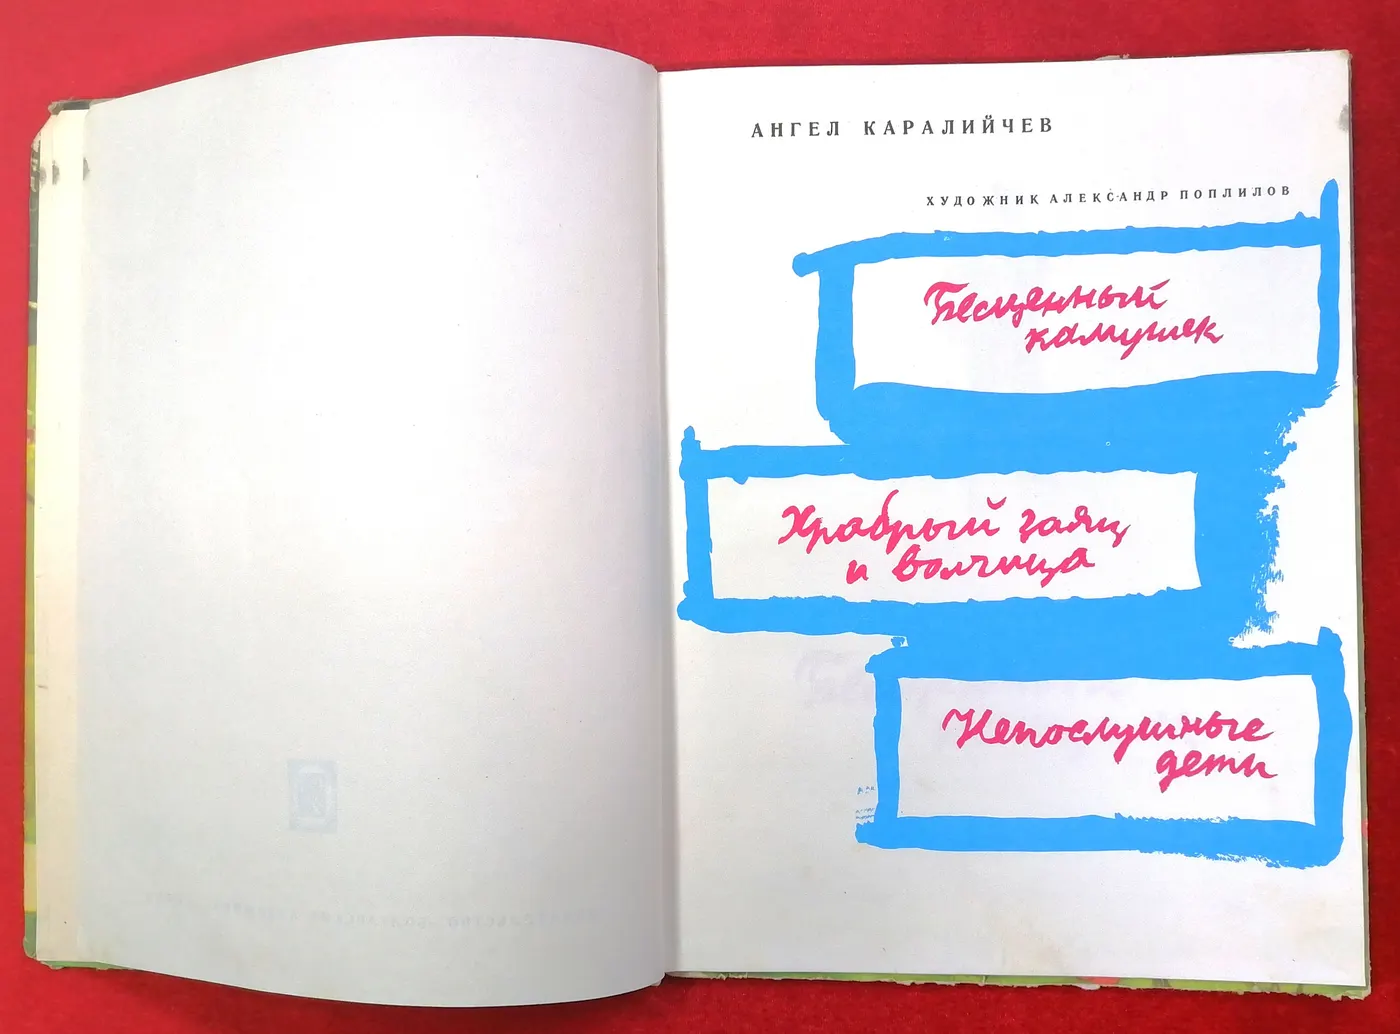 АНГЕЛ КАРАЛИЙЧЕВ
ХУДОЖНИК АЛЕКСАНДР ПОПЛИЛОВ
Бесценный
камушек
Храбрый заяц
и волчица
Непослушные
дети